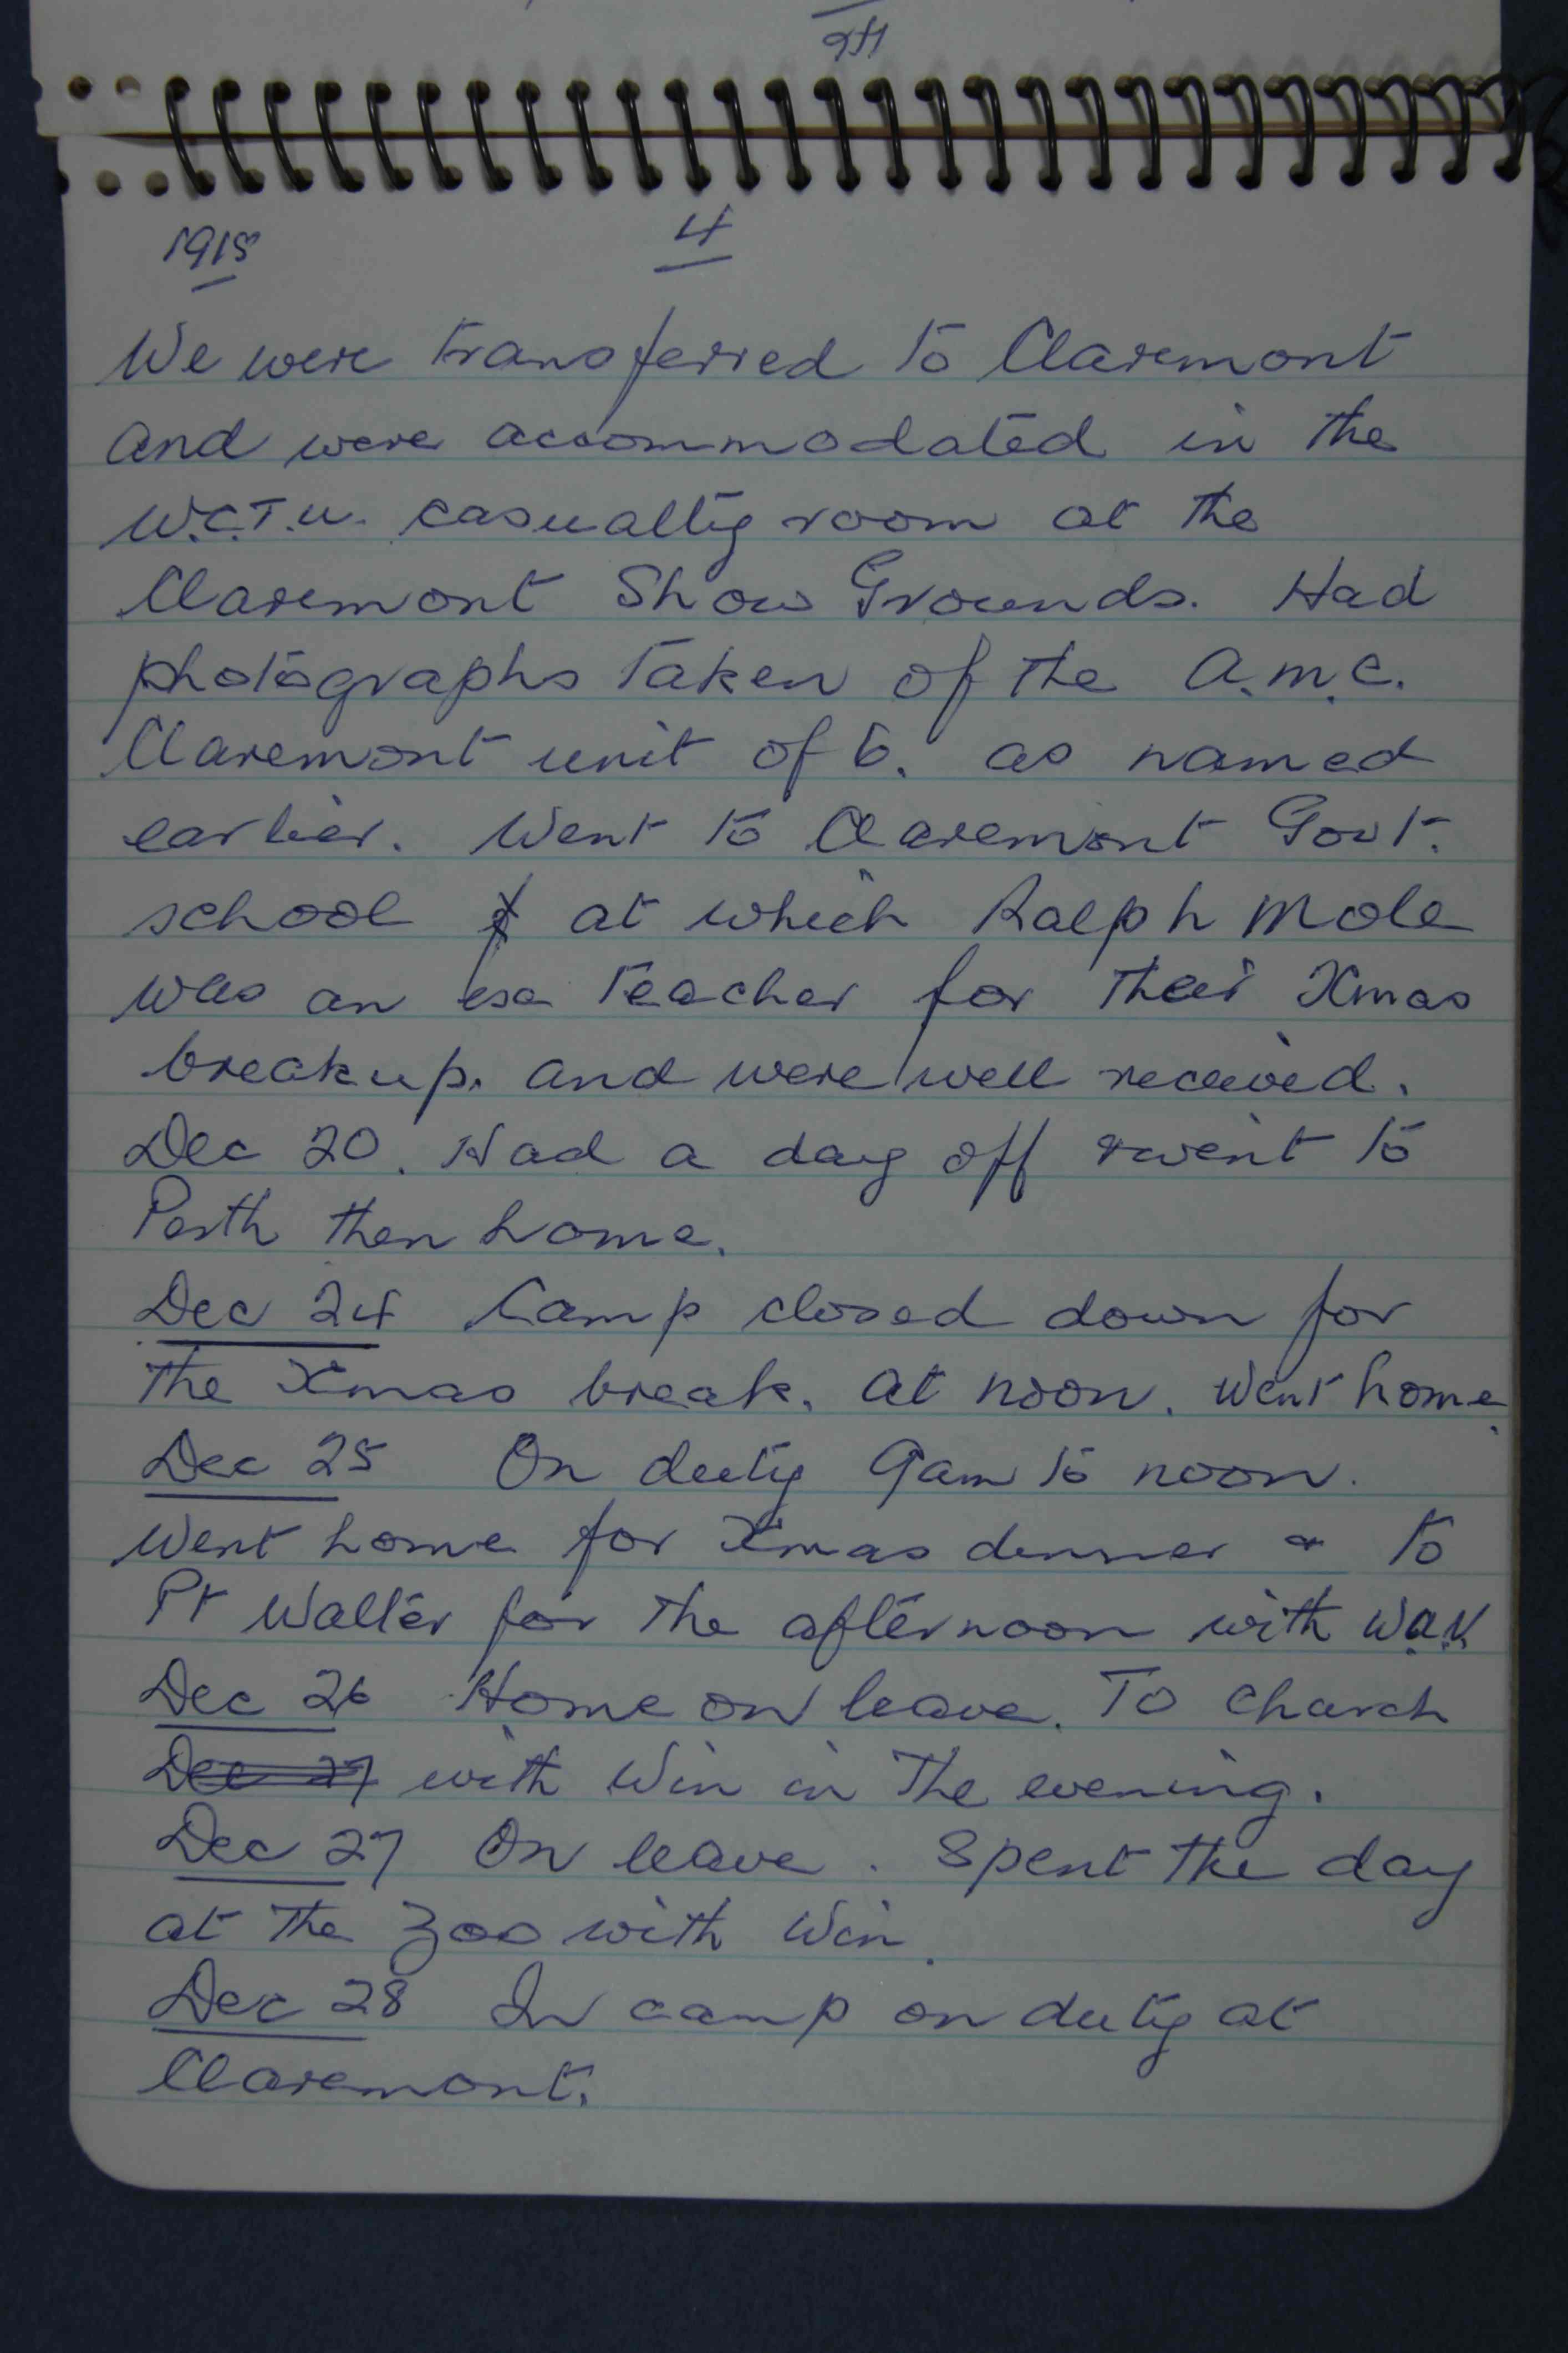 46
1915 4
We were transferred to Claremont
and were accommodated in the
W.C.T.U. casualty room at the
Claremont Show Grounds. Had
photographs taken of the A.M.C.
Claremont unit of 6. as named
earlier. Went to Claremont Govt.
school at which Ralph Mole
was an ex teacher for their Xmas
breakup. and were well received.
Dec 20. Had a day off & went to
Perth then home.
Dec 24 Camp closed down for
the Xmas break. at noon. Went home.
Dec 25 On duty 9am to noon.
Went home for Xmas dinner & to
Pt Walter for the afternoon with W.A.V.
Dec 26 Home on leave. To Church
Dec 27 with Win in the evening.
Dec 27 On leave. Spent the day
at the Zoo with Win.
Dec 28 In camp on duty at
Claremont.